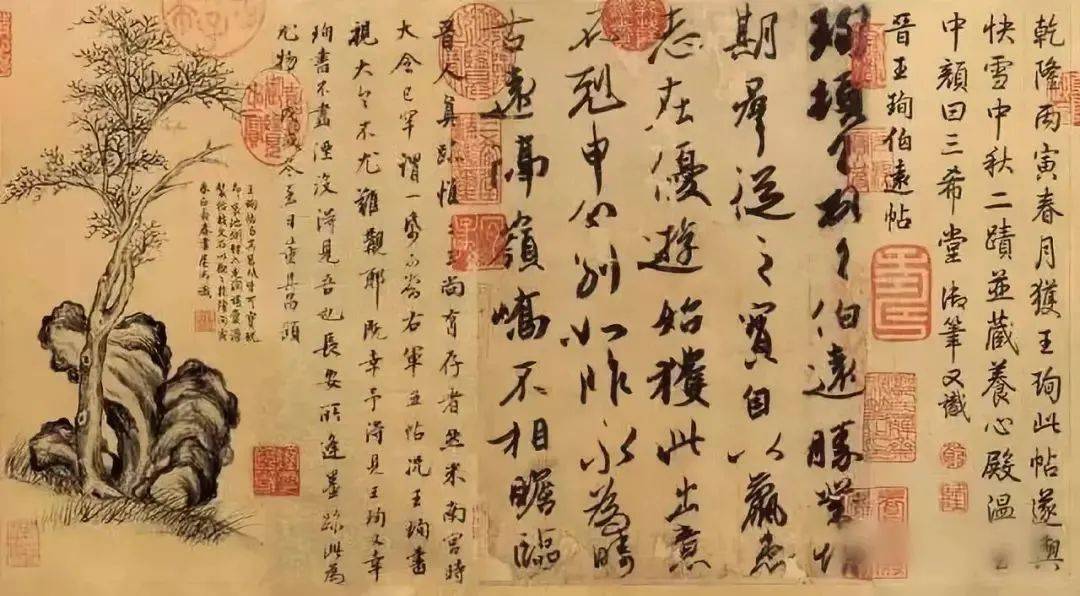 乾隆丙寅春月獲王珣此帖遂與
快雪中秋二蹟並藏養心殿溫
中顏曰三希堂御筆又識
晉王珣伯遠帖
珣頓首頓首伯遠勝業情
期羣從之寶自以羸患
志在優遊始獲此出意
不剋申分別如昨永為疇
古遠隔嶺嶠不相瞻臨
晉人真跡惟二王尚有存者然米南宮時
大令已罕謂一紙可當右軍五帖況王珣書
視大令不尤難覯耶既幸予得見王珣又幸
珣書不盡湮沒得見吾也長安所逢墨跡此為
尤物戊戌冬至日董其昌題